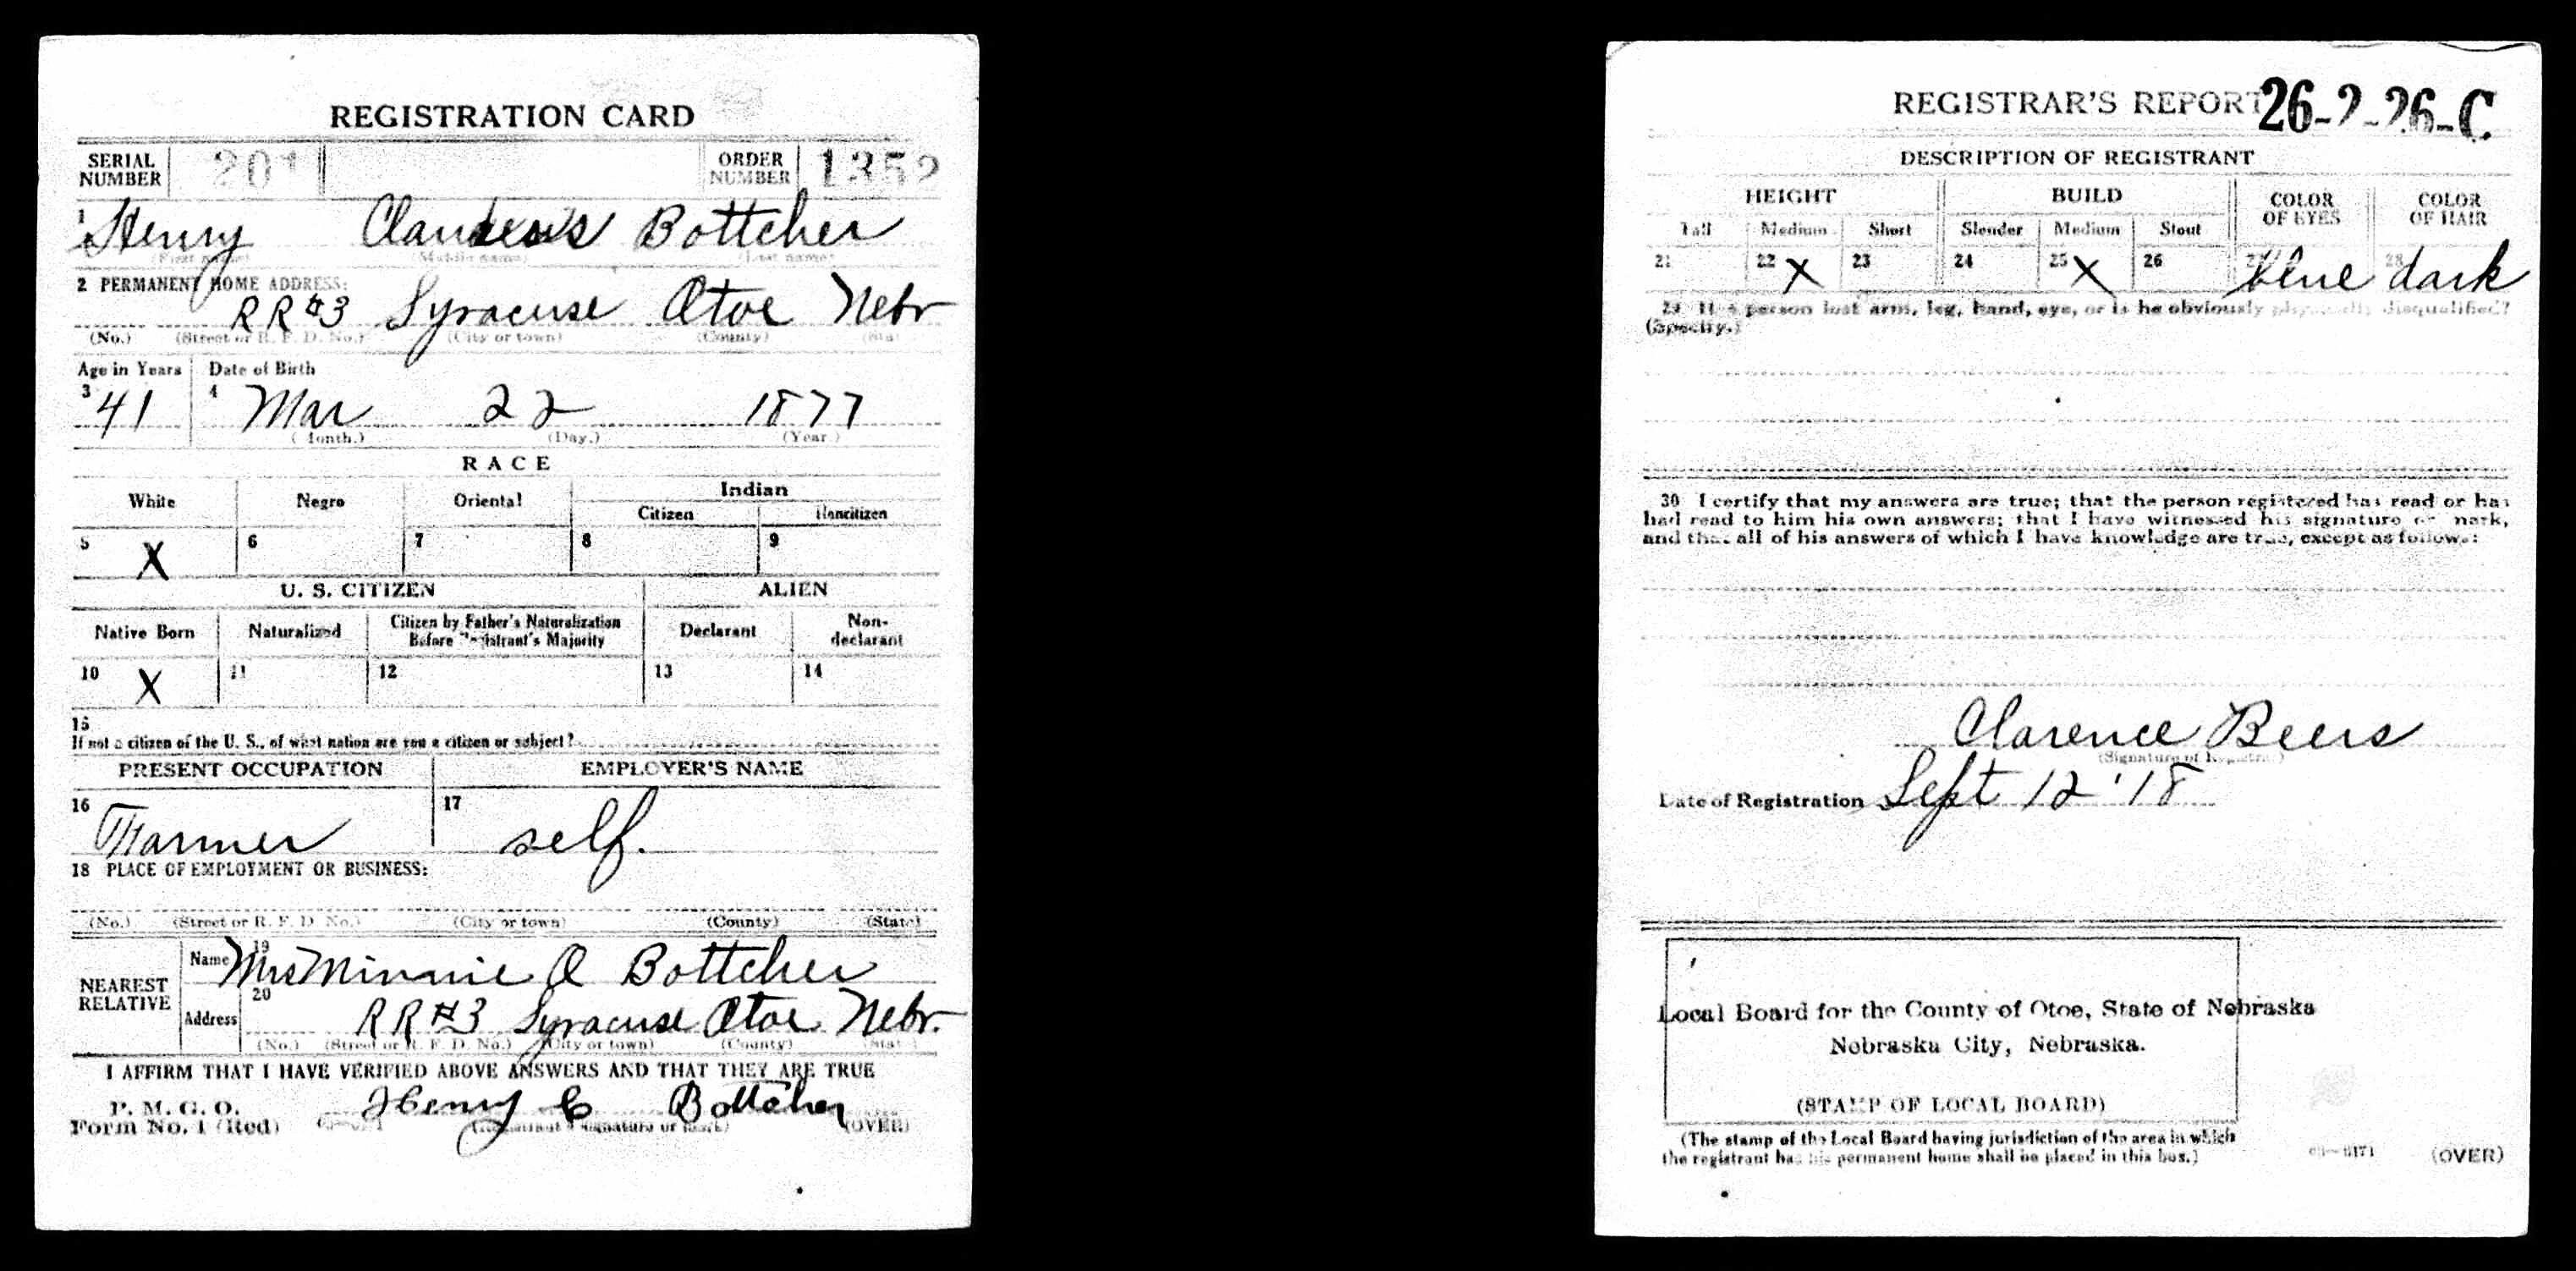 REGISTRATION CARD
SERIAL NUMBER 201 ORDER NUMBER 1352
1 Henry Bottcher
(First name) (Middle name) (Last name)
2 PERMANENT HOME ADDRESS:
RR #3 Syracuse Otoe Nebr
(No.) (Street or R. F. D. No.) (City or town) (County)
Age in Years Date of Birth
3 41 4 Mar 22 1877
(Day.) (Year.)
RACE
White Negro Oriental Indian
Citizen Noncitizen
5 X 6 7 8 9
U. S. CITIZEN ALIEN
Native Born Naturalized Citizen by Father's Naturalization Before Registrant's Majority Declarant Non-declarant
10 X 11 12 13 14
15
If not a citizen of the U. S., of what nation are you a citizen or subject?
PRESENT OCCUPATION EMPLOYER'S NAME
16 Farmer 17 self.
18 PLACE OF EMPLOYMENT OR BUSINESS:
(No.) (Street or R. F. D. No.) (City or town) (County) (State)
NEAREST RELATIVE Name 19 Mrs Minnie A Bottcher
Address 20 RR #3 Syracuse Otoe Nebr.
(No.) (Street or R. F. D. No.) (City or town) (County)
I AFFIRM THAT I HAVE VERIFIED ABOVE ANSWERS AND THAT THEY ARE TRUE
P. M. G. O.
Form No. 1 (Red) Henry C Bottcher
(Registrant's signature or mark) (OVER)
REGISTRAR'S REPORT 26-2-26-C
DESCRIPTION OF REGISTRANT
HEIGHT BUILD COLOR OF EYES COLOR OF HAIR
Tall Medium Short Slender Medium Stout
21 22 X 23 24 25 X 26 27 blue 28 dark
29 Has person lost arm, leg, hand, eye, or is he obviously physically disqualified?
(Specify.)
30 I certify that my answers are true; that the person registered has read or has
had read to him his own answers; that I have witnessed his signature or mark,
and that all of his answers of which I have knowledge are true, except as follows:
Clarence Beers
(Signature of Registrar)
Date of Registration Sept 12 '18
Local Board for the County of Otoe, State of Nebraska
Nebraska City, Nebraska.
(STAMP OF LOCAL BOARD)
(The stamp of the Local Board having jurisdiction of the area in which
the registrant has his permanent home shall be placed in this box.)
(OVER)